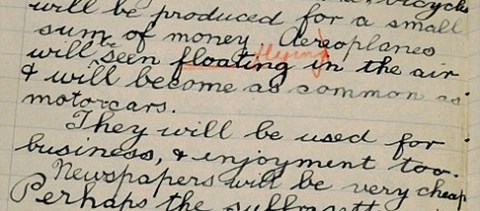 bicycle
will be produced for a small
sum of money Aereoplanes
will be seen floating flying in the air
& will become as common as
motorcars.
They will be used for
business, & enjoyment too.
Newspapers will be very cheap
Perhaps the suffragette